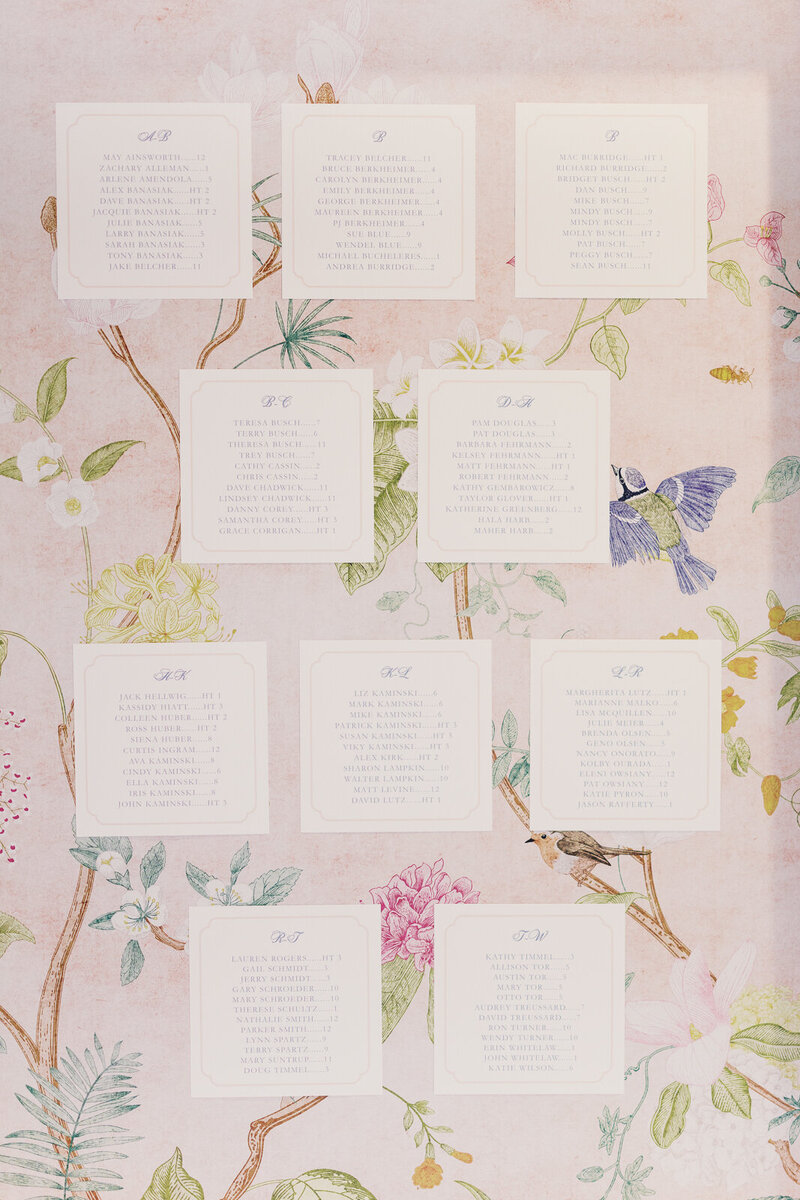 A-B
MAY AINSWORTH......12
ZACHARY ALLEMAN......1
ARLENE AMENDOLA......5
ALEX BANASIAK......HT 2
DAVE BANASIAK......HT 2
JACQUIE BANASIAK......HT 2
JULIE BANASIAK......5
LARRY BANASIAK......5
SARAH BANASIAK......3
TONY BANASIAK......3
JAKE BELCHER......11
B
TRACEY BELCHER......11
BRUCE BERKHEIMER......4
CAROLYN BERKHEIMER......4
EMILY BERKHEIMER......4
GEORGE BERKHEIMER......4
MAUREEN BERKHEIMER......4
PJ BERKHEIMER......4
SUE BLUE......9
WENDEL BLUE......9
MICHAEL BUCHELERES......1
ANDREA BURRIDGE......2
B
MAC BURRIDGE......HT 3
RICHARD BURRIDGE......2
BRIDGET BUSCH......HT 2
DAN BUSCH......9
MIKE BUSCH......7
MINDY BUSCH......9
MINDY BUSCH......7
MOLLY BUSCH......HT 2
PAT BUSCH......7
PEGGY BUSCH......7
SEAN BUSCH......11
B-C
TERESA BUSCH......7
TERRY BUSCH......6
THERESA BUSCH......11
TREY BUSCH......7
CATHY CASSIN......2
CHRIS CASSIN......2
DAVE CHADWICK......11
LINDSEY CHADWICK......11
DANNY COREY......HT 3
SAMANTHA COREY......HT 3
GRACE CORRIGAN......HT 1
D-H
PAM DOUGLAS......3
PAT DOUGLAS......3
BARBARA FEHRMANN......2
KELSEY FEHRMANN......HT 1
MATT FEHRMANN......HT 1
ROBERT FEHRMANN......2
KATHY GEMBAROWICZ......8
TAYLOR GLOVER......HT 3
KATHERINE GREENBERG......12
HALA HARB......2
MAHER HARB......2
H-K
JACK HELLWIG......HT 1
KASSIDY HIATT......HT 3
COLLEEN HUBER......HT 2
ROSS HUBER......HT 2
SIENA HUBER......8
CURTIS INGRAM......12
AVA KAMINSKI......8
CINDY KAMINSKI......6
ELLA KAMINSKI......8
IRIS KAMINSKI......8
JOHN KAMINSKI......HT 3
K-L
LIZ KAMINSKI......6
MARK KAMINSKI......6
MIKE KAMINSKI......6
PATRICK KAMINSKI......HT 3
SUSAN KAMINSKI......HT 3
VIKY KAMINSKI......HT 3
ALEX KIRK......HT 2
SHARON LAMPKIN......10
WALTER LAMPKIN......10
MATT LEVINE......12
DAVID LUTZ......HT 1
L-R
MARGHERITA LUTZ......HT 1
MARIANNE MALKO......6
LISA MCQUILLEN......10
JULIE MEIER......4
BRENDA OLSEN......5
GENO OLSEN......5
NANCY ONORATO......9
KOLBY OURADA......1
ELENI OWSIANY......12
PAT OWSIANY......12
KATIE PYRON......10
JASON RAFFERTY......1
R-T
LAUREN ROGERS......HT 3
GAIL SCHMIDT......3
JERRY SCHMIDT......3
GARY SCHROEDER......10
MARY SCHROEDER......10
THERESE SCHULTZ......1
NATHALIE SMITH......12
PARKER SMITH......12
LYNN SPARTZ......9
TERRY SPARTZ......9
MARY SUNTRUP......11
DOUG TIMMEL......3
T-W
KATHY TIMMEL......3
ALLISON TOR......5
AUSTIN TOR......5
MARY TOR......5
OTTO TOR......5
AUDREY TREUSSARD......7
DAVID TREUSSARD......7
RON TURNER......10
WENDY TURNER......10
ERIN WHITELAW......1
JOHN WHITELAW......1
KATIE WILSON......6